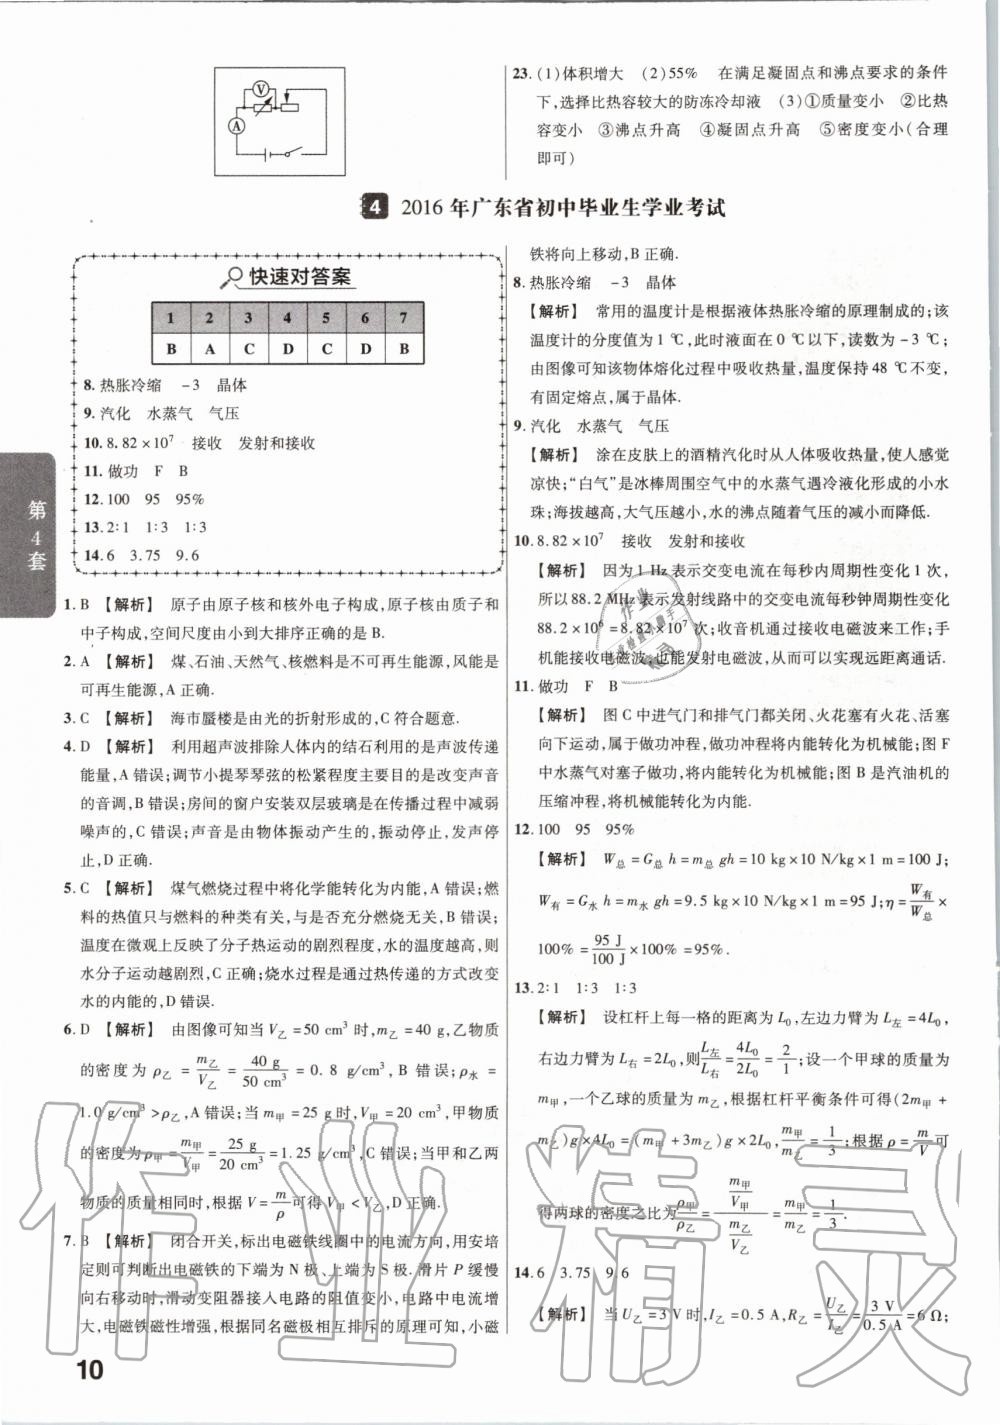 V
A
23.(1)体积增大 (2)55% 在满足凝固点和沸点要求的条件
下,选择比热容较大的防冻冷却液 (3)①质量变小 ②比热
容变小 ③沸点升高 ④凝固点升高 ⑤密度变小(合理
即可)
4 2016年广东省初中毕业生学业考试
快速对答案
1 2 3 4 5 6 7
B A C D C D B
8.热胀冷缩 -3 晶体
9.汽化 水蒸气 气压
10.8.82×10⁷ 接收 发射和接收
11.做功 F B
12.100 95 95%
13.2∶1 1∶3 1∶3
14.6 3.75 9.6
第4套
1.B 【解析】 原子由原子核和核外电子构成,原子核由质子和
中子构成,空间尺度由小到大排序正确的是 B.
2.A 【解析】 煤、石油、天然气、核燃料是不可再生能源,风能是
可再生能源,A 正确.
3.C 【解析】 海市蜃楼是由光的折射形成的,C 符合题意.
4.D 【解析】 利用超声波排除人体内的结石利用的是声波传递
能量,A 错误;调节小提琴琴弦的松紧程度主要目的是改变声音
的音调,B 错误;房间的窗户安装双层玻璃是在传播过程中减弱
噪声的,C 错误;声音是由物体振动产生的,振动停止,发声停
止,D 正确.
5.C 【解析】 煤气燃烧过程中将化学能转化为内能,A 错误;燃
料的热值只与燃料的种类有关,与是否充分燃烧无关,B 错误;
温度在微观上反映了分子热运动的剧烈程度,水的温度越高,则
水分子运动越剧烈,C 正确;烧水过程是通过热传递的方式改变
水的内能的,D 错误.
6.D 【解析】 由图像可知当 V乙=50 cm³ 时,m乙=40 g,乙物质
的密度为 ρ乙=m乙/V乙=40 g/50 cm³=0.8 g/cm³,B 错误;ρ水=
1.0 g/cm³>ρ乙,A 错误;当 m甲=25 g 时,V甲=20 cm³,甲物质
的密度为 ρ甲=m甲/V甲=25 g/20 cm³=1.25 g/cm³,C 错误;当甲和乙两
物质的质量相同时,根据 V=m/ρ 可得 V甲<V乙,D 正确.
7.B 【解析】 闭合开关,标出电磁铁线圈中的电流方向,用安培
定则可判断出电磁铁的下端为 N 极、上端为 S 极.滑片 P 缓慢
向右移动时,滑动变阻器接入电路的阻值变小,电路中电流增
大,电磁铁磁性增强,根据同名磁极相互排斥的原理可知,小磁
铁将向上移动,B 正确.
8.热胀冷缩 -3 晶体
【解析】 常用的温度计是根据液体热胀冷缩的原理制成的;该
温度计的分度值为 1 ℃,此时液面在 0 ℃以下,读数为-3 ℃;
由图像可知该物体熔化过程中吸收热量,温度保持 48 ℃不变,
有固定熔点,属于晶体.
9.汽化 水蒸气 气压
【解析】 涂在皮肤上的酒精汽化时从人体吸收热量,使人感觉
凉快;“白气”是冰棒周围空气中的水蒸气遇冷液化形成的小水
珠;海拔越高,大气压越小,水的沸点随着气压的减小而降低.
10.8.82×10⁷ 接收 发射和接收
【解析】 因为 1 Hz 表示交变电流在每秒内周期性变化 1 次,
所以 88.2 MHz 表示发射线路中的交变电流每秒钟周期性变化
88.2×10⁶=8.82×10⁷ 次;收音机通过接收电磁波来工作;手
机能接收电磁波,也能发射电磁波,从而可以实现远距离通话.
11.做功 F B
【解析】 图 C 中进气门和排气门都关闭、火花塞有火花、活塞
向下运动,属于做功冲程,做功冲程将内能转化为机械能;图 F
中水蒸气对塞子做功,将内能转化为机械能;图 B 是汽油机的
压缩冲程,将机械能转化为内能.
12.100 95 95%
【解析】 W总=G总h=m总gh=10 kg×10 N/kg×1 m=100 J;
W有=G水h=m水gh=9.5 kg×10 N/kg×1 m=95 J;η=W有/W总×
100%=95 J/100 J×100%=95%.
13.2∶1 1∶3 1∶3
【解析】 设杠杆上每一格的距离为 L₀,左边力臂为 L左=4L₀,
右边力臂为 L右=2L₀,则L左/L右=4L₀/2L₀=2/1;设一个甲球的质量为
m甲,一个乙球的质量为 m乙,根据杠杆平衡条件可得(2m甲+
m乙)g×4L₀=(m甲+3m乙)g×2L₀,m甲/m乙=1/3;根据 ρ=m/V 可
得两球的密度之比为ρ甲/ρ乙=(m甲/V甲)/(m乙/V乙)=m甲/m乙=1/3.
14.6 3.75 9.6
【解析】 当 U乙=3 V 时,I乙=0.5 A,R乙=U乙/I乙=3 V/0.5 A=6 Ω;
10
作业精灵